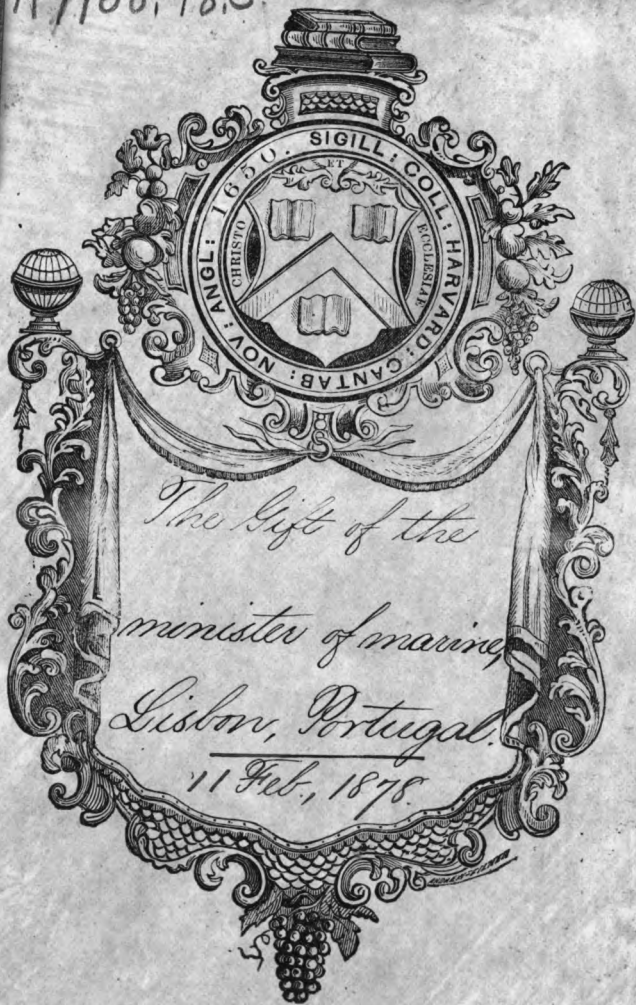 SIGILL: COLL: HARVARD: CANTAB: NOV: ANGL: 1650.
ET
CHRISTO
ECCLESIAE
The Gift of the
minister of marine,
Lisbon, Portugal.
11 Feb., 1878.